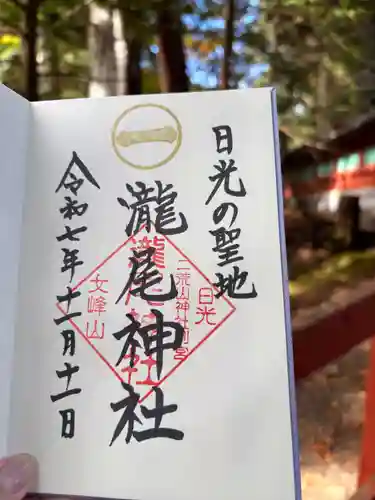 日光の聖地
瀧尾神社
令和七年十一月十一日
日光
二荒山神社別宮
瀧尾神社
女峰山